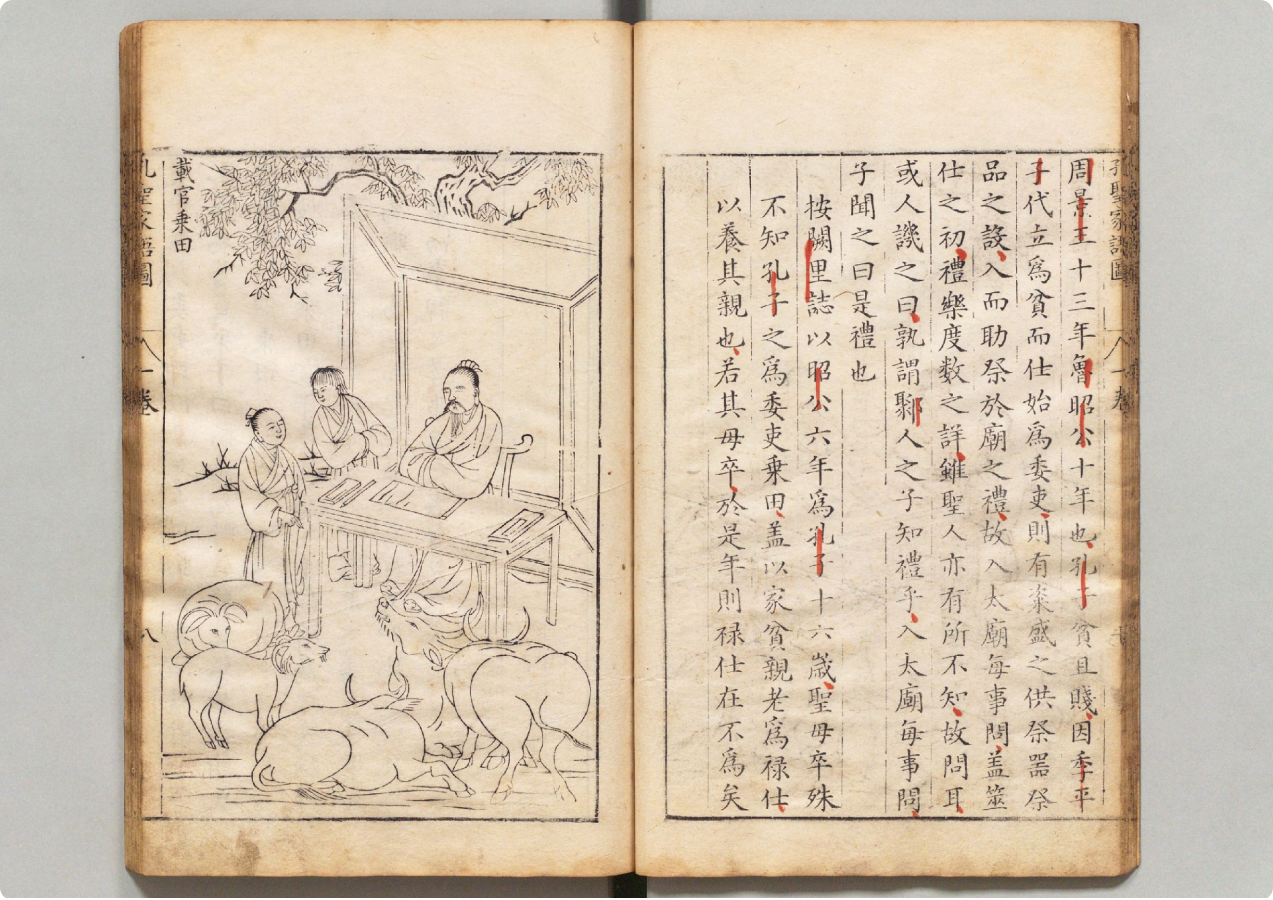 孔聖家語圖 一卷
周景王十三年魯昭公十年也孔子貧且賤因季平
子代立爲貧而仕始爲委吏則有粢盛之供祭器祭
品之設入而助祭於廟之禮故入太廟每事問盖筮
仕之初禮樂度数之詳雖聖人亦有所不知故問耳
或人譏之曰孰謂鄹人之子知禮乎入太廟每事問
子聞之曰是禮也
按闕里誌以昭公六年爲孔子十六歲聖母卒殊
不知孔子之爲委吏乗田盖以家貧親老爲禄仕
以養其親也若其母卒於是年則禄仕在不爲矣
載官乗田
孔聖家語圖 一卷 八